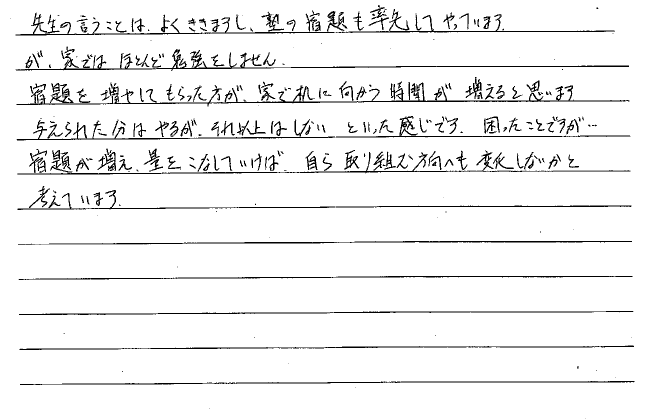 先生の言うことは、よくききますし、塾の宿題も率先してやっています。
が、家では ほとんど勉強をしません。
宿題を 増やしてもらった方が、家で机に向かう時間が 増えると思います
与えられた分はやるが、それ以上はしない といった感じです。困ったことですが…
宿題が増え、量をこなしていけば、自ら取り組む方向へも変化しないかと
考えています。